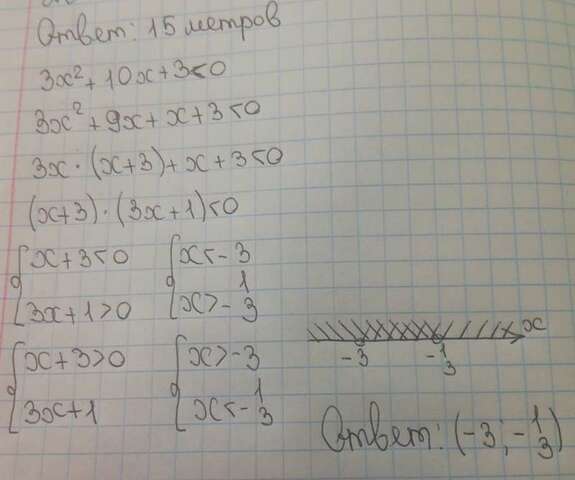 Ответ: 15 метров
3x² + 10x + 3 < 0
3x² + 9x + x + 3 < 0
3x · (x+3) + x + 3 < 0
(x+3) · (3x+1) < 0
{ x+3 < 0 { x < -3
{ 3x+1 > 0 { x > -1/3
x
-3 -1/3
{ x+3 > 0 { x > -3
{ 3x+1 { x < -1/3
Ответ: (-3; -1/3)